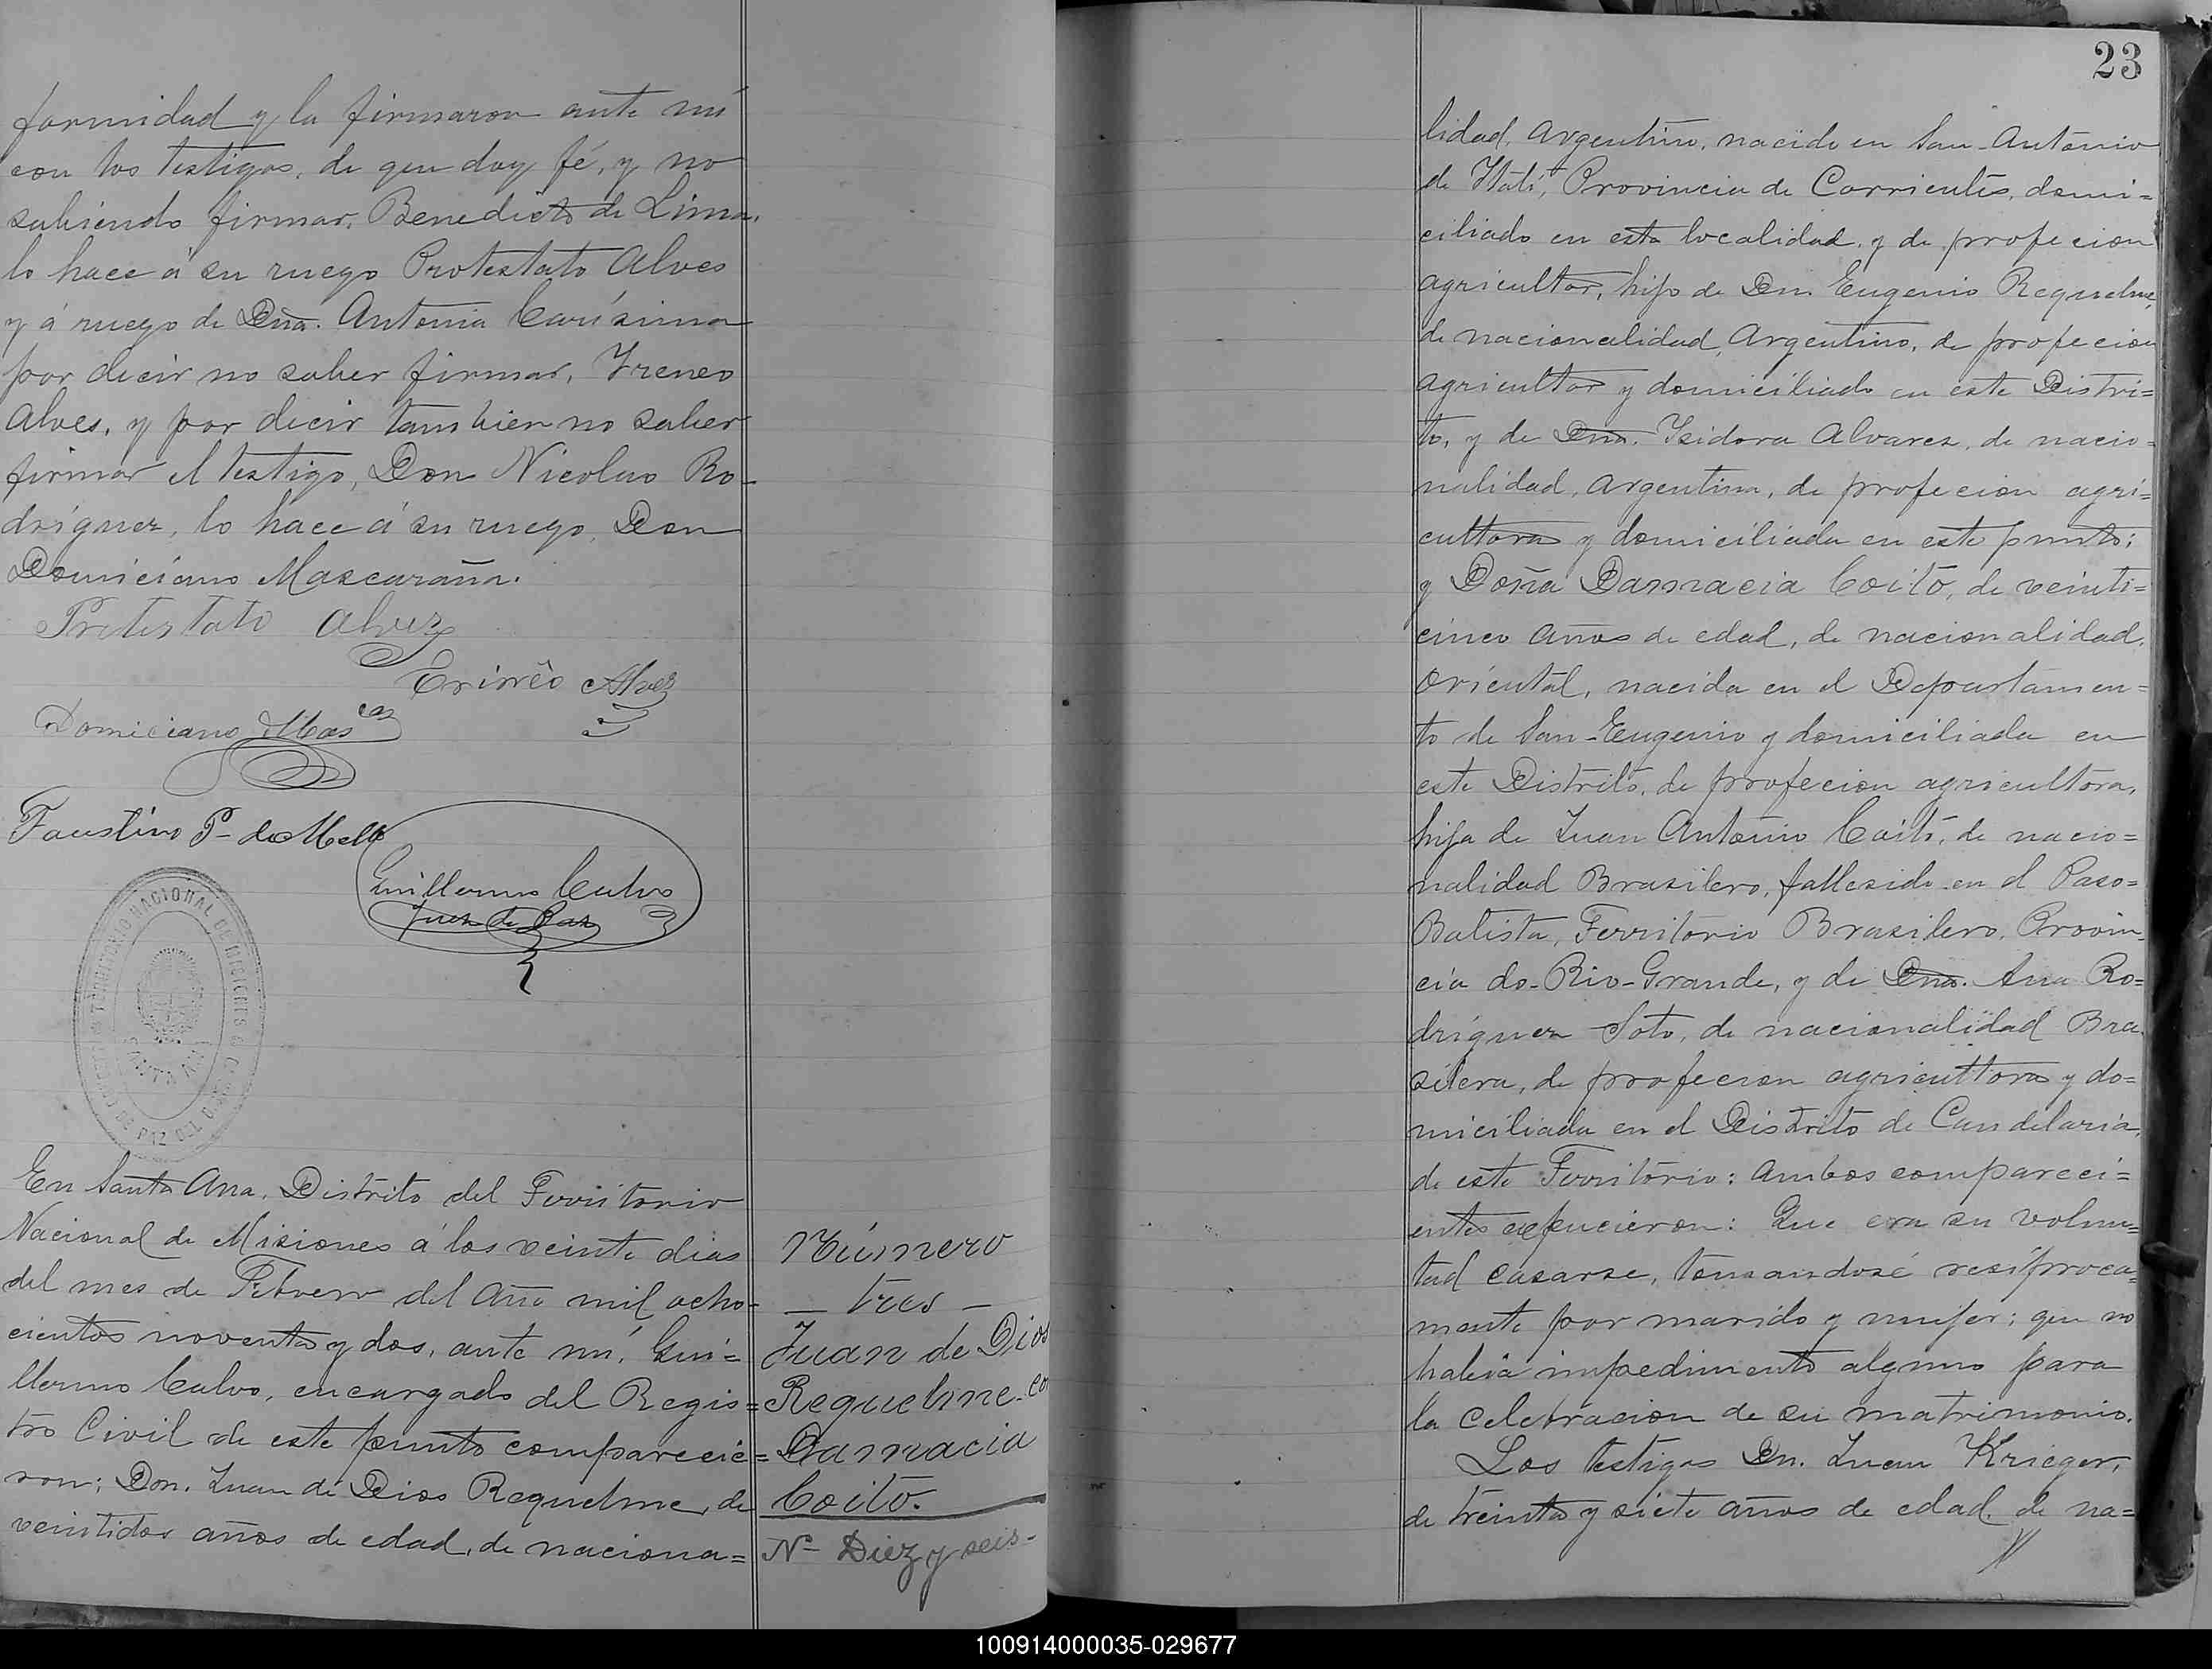 formidad y la firmaron ante mí
con los testigos, de que doy fé, y no
sabiendo firmar, Benedicto de Lima,
lo hace á su ruego Protestato Alves
y á ruego de Dña. Antonia Carísima
por decir no saber firmar, Yreneo
Alves, y por decir tambien no saber
firmar el testigo, Don Nicolas Ro-
dríguez, lo hace á su ruego, Don
Domiciano Mascaraña.
Protestato Alvez
Erinêo Alvez
Domiciano Mas
Faustino P- de Mello
Guillermo Calvo
Juez de Paz
TERRITORIO NACIONAL DE MISIONES
SANTA ANA
En Santa Ana, Distrito del Territorio
Nacional de Misiones á los veinte dias
del mes de Febrero del Año mil ocho-
cientos noventa y dos, ante mí, Gui=
llermo Calvo, encargado del Regis=
tro Civil de este punto comparecie=
ron; Don. Juan de Dios Requelme, de
veintidos años de edad, de naciona=
Número
- tres -
Juan de Dios
Requelme co
Damacia
Coito.
Nº Diez y seis-
23
lidad, Argentino, nacido en San-Antonio
de Itatí, Provincia de Corrientes, domi=
ciliado en esta localidad, y de profecion
agricultor, hijo de Dn. Eugenio Requelme,
de nacionalidad, Argentino, de profecion
agricultor y domiciliado en este Distri=
to, y de Dña. Ysidora Alvarez, de nacio=
nalidad, Argentina, de profecion agri=
cultora y domiciliada en este punto;
y Doña Damacia Coito, de veinti=
cinco años de edad, de nacionalidad,
Oriental, nacida en el Departamen=
to de San-Eugenio y domiciliada en
este Distrito, de profecion agricultora,
hija de Juan Antonio Coito, de nacio=
nalidad Brasilero, fallesido en el Paso=
Batista, Territorio Brasilero, Provin-
cia do-Rio-Grande, y de Dña. Ana Ro=
dríguez Soto, de nacionalidad Bra
silera, de profecion agricultora y do=
miciliada en el Distrito de Candelaria,
de este Territorio; ambos compareci=
entes expucieron: Que era su volun=
tad casarse, tomandosé resíproca=
mente por marido y mujer; que no
habia impedimento alguno para
la celebracion de su matrimonio.
Los testigos Dn. Juan Krieger,
de treinta y siete años de edad, de na=
100914000035-029677